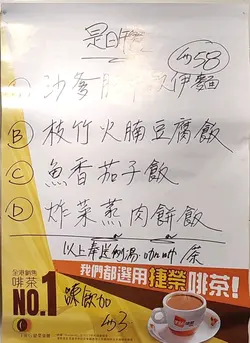 是日
$58
沙爹 伊麵
B 枝竹火腩豆腐飯
C 魚香茄子飯
D 炸菜蒸肉餅飯
以上奉送例湯.咖啡/茶
我們都選用捷榮啡茶!
全港銷售
啡茶
NO.1
凍飲加
$3